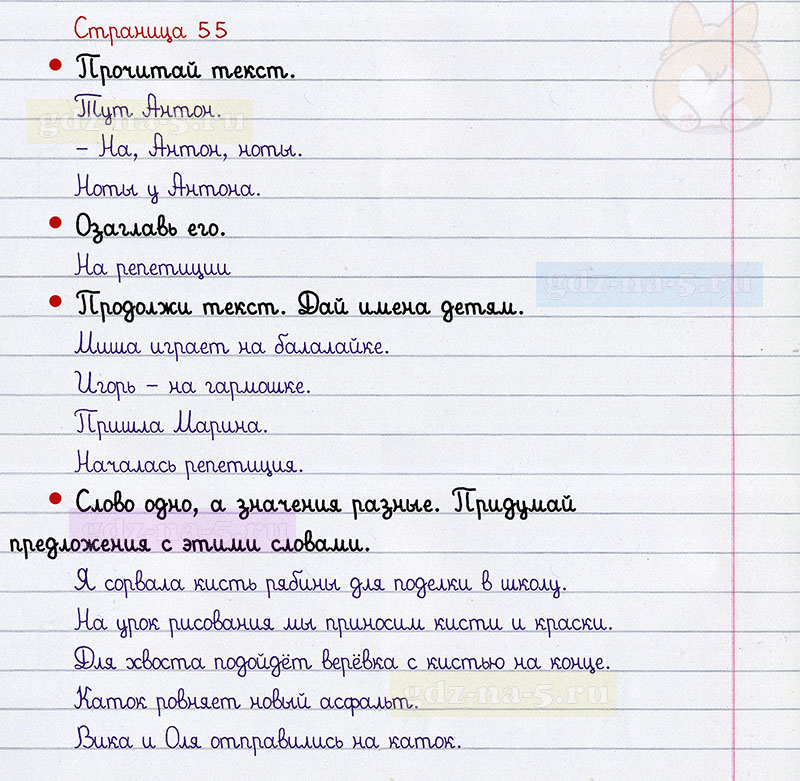 Страница 55
• Прочитай текст.
Тут Антон.
gdz-na-5.ru
– На, Антон, ноты.
Ноты у Антона.
• Озаглавь его.
На репетиции
gdz-na-5.ru
• Продолжи текст. Дай имена детям.
Миша играет на балалайке.
Игорь – на гармошке.
Пришла Марина.
Началась репетиция.
• Слово одно, а значения разные. Придумай
gdz-na-5.ru
предложения с этими словами.
Я сорвала кисть рябины для поделки в школу.
На урок рисования мы приносим кисти и краски.
Для хвоста подойдёт верёвка с кистью на конце.
gdz-na-5.ru
Каток ровняет новый асфальт.
Вика и Оля отправились на каток.